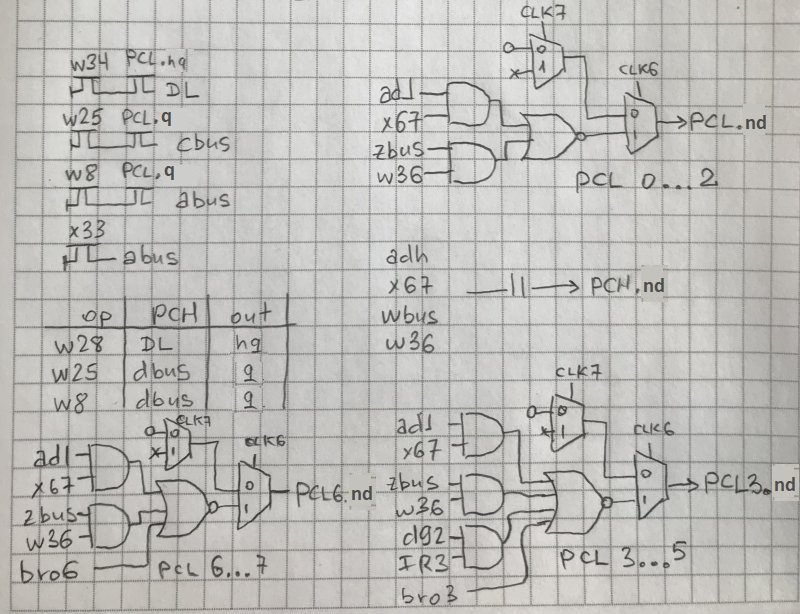 w34 PCL.nq
DL
w25 PCL.q
cbus
w8 PCL.q
abus
x33
abus
op PCH out
w28 DL nq
w25 dbus q
w8 dbus q
CLK7
0
1
CLK6
ad1
x67
zbus
w36
0
1
PCL.nd
PCL 0...2
adh
x67
wbus
w36
PCH.nd
CLK7
0
1
CLK6
ad1
x67
zbus
w36
bro6
0
1
PCL6.nd
PCL 6...7
CLK7
0
1
CLK6
ad1
x67
zbus
w36
d92
IR3
bro3
0
1
PCL3.nd
PCL 3...5